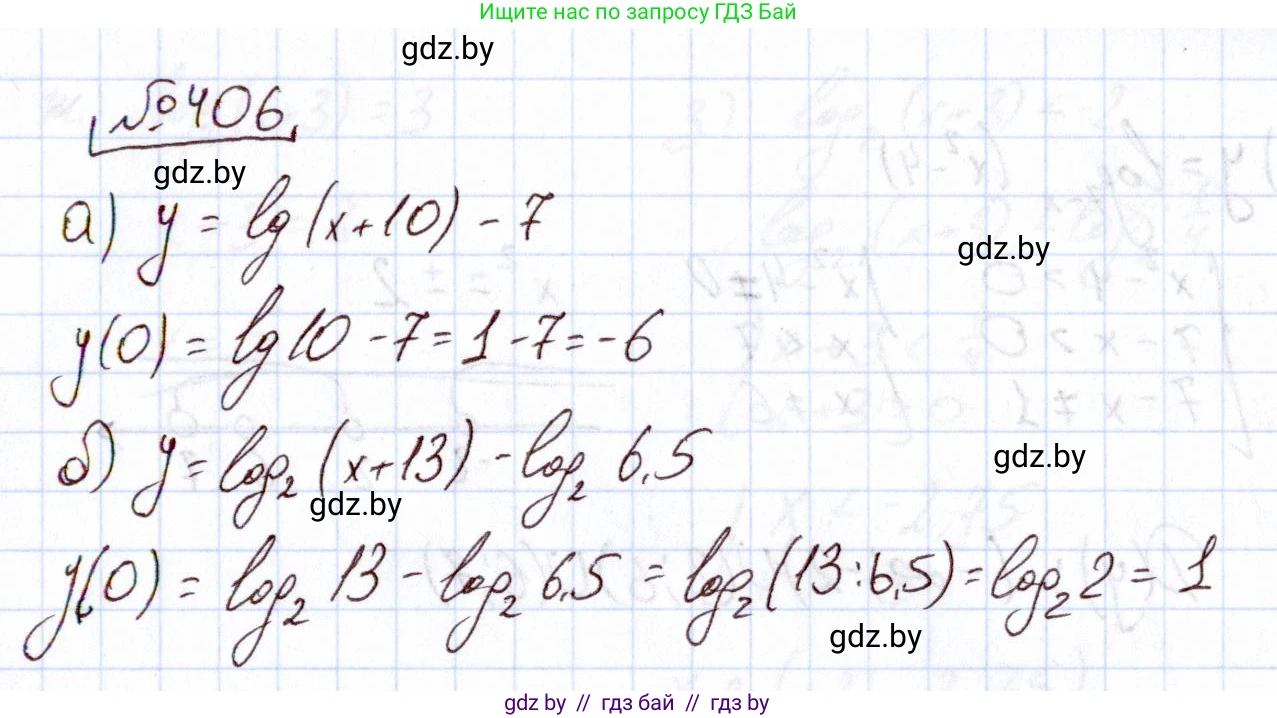 Ищите нас по запросу ГДЗ Бай
gdz.by
№406
gdz.by
а) y = lg(x+10) - 7
gdz.by
y(0) = lg10 - 7 = 1 - 7 = -6
б) y = log₂(x+13) - log₂ 6,5
gdz.by
gdz.by
y(0) = log₂ 13 - log₂ 6,5 = log₂(13:6,5) = log₂2 = 1
gdz.by
gdz.by // гдз бай // гдз by